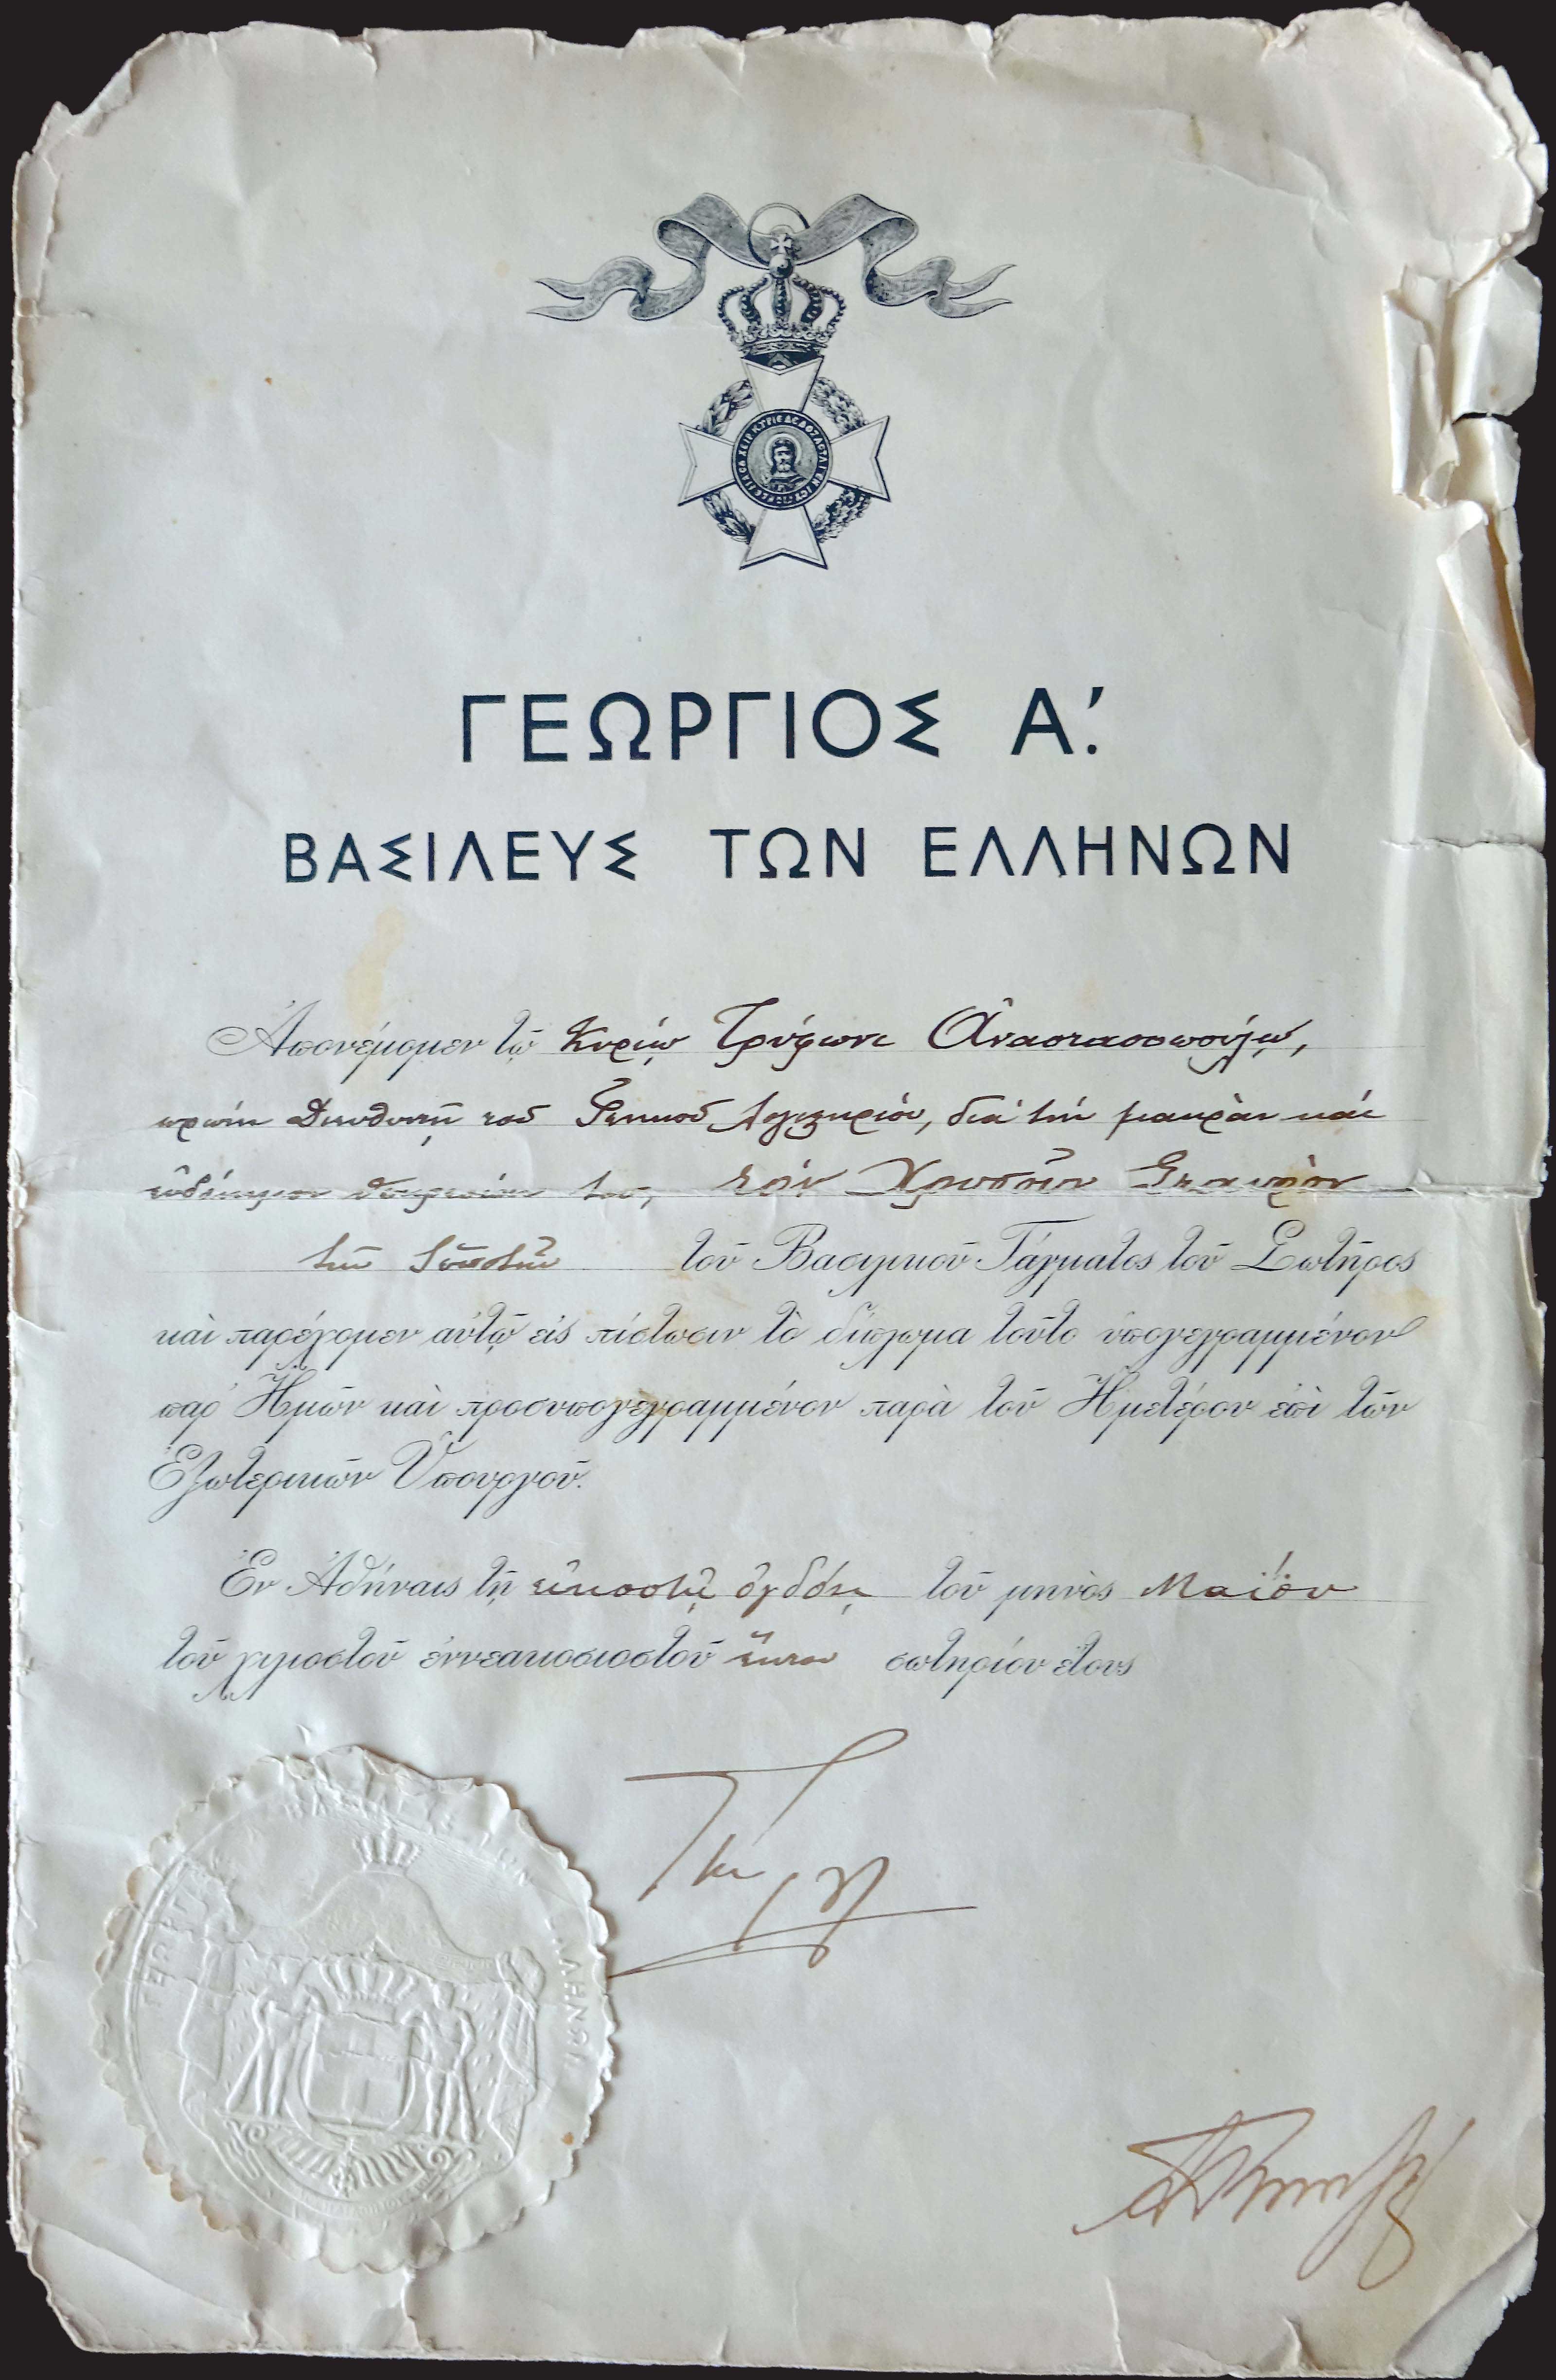 ΓΕΩΡΓΙΟΣ Α΄.
ΒΑΣΙΛΕΥΣ ΤΩΝ ΕΛΛΗΝΩΝ
Ἀπονέμομεν τῷ Κυρίῳ Τρύφωνι Ἀναστασοπούλῳ,
πρώην Διευθυντῇ τοῦ Γενικοῦ Λογιστηρίου, διὰ τὴν μακρὰν καὶ
εὐδόκιμον ὑπηρεσίαν του, τὸν Χρυσοῦν Σταυρὸν
τῶν Ἱπποτῶν τοῦ Βασιλικοῦ Τάγματος τοῦ Σωτῆρος
καὶ παρέχομεν αὐτῷ εἰς πίστωσιν τὸ δίπλωμα τοῦτο ὑπογεγραμμένον
παρ' Ἡμῶν καὶ προσυπογεγραμμένον παρὰ τοῦ Ἡμετέρου ἐπὶ τῶν
Ἐξωτερικῶν Ὑπουργοῦ.
Ἐν Ἀθήναις τῇ εἰκοστῇ ὀγδόῃ τοῦ μηνὸς Μαΐου
τοῦ χιλιοστοῦ ἐννεακοσιοστοῦ ἕκτου σωτηρίου ἔτους